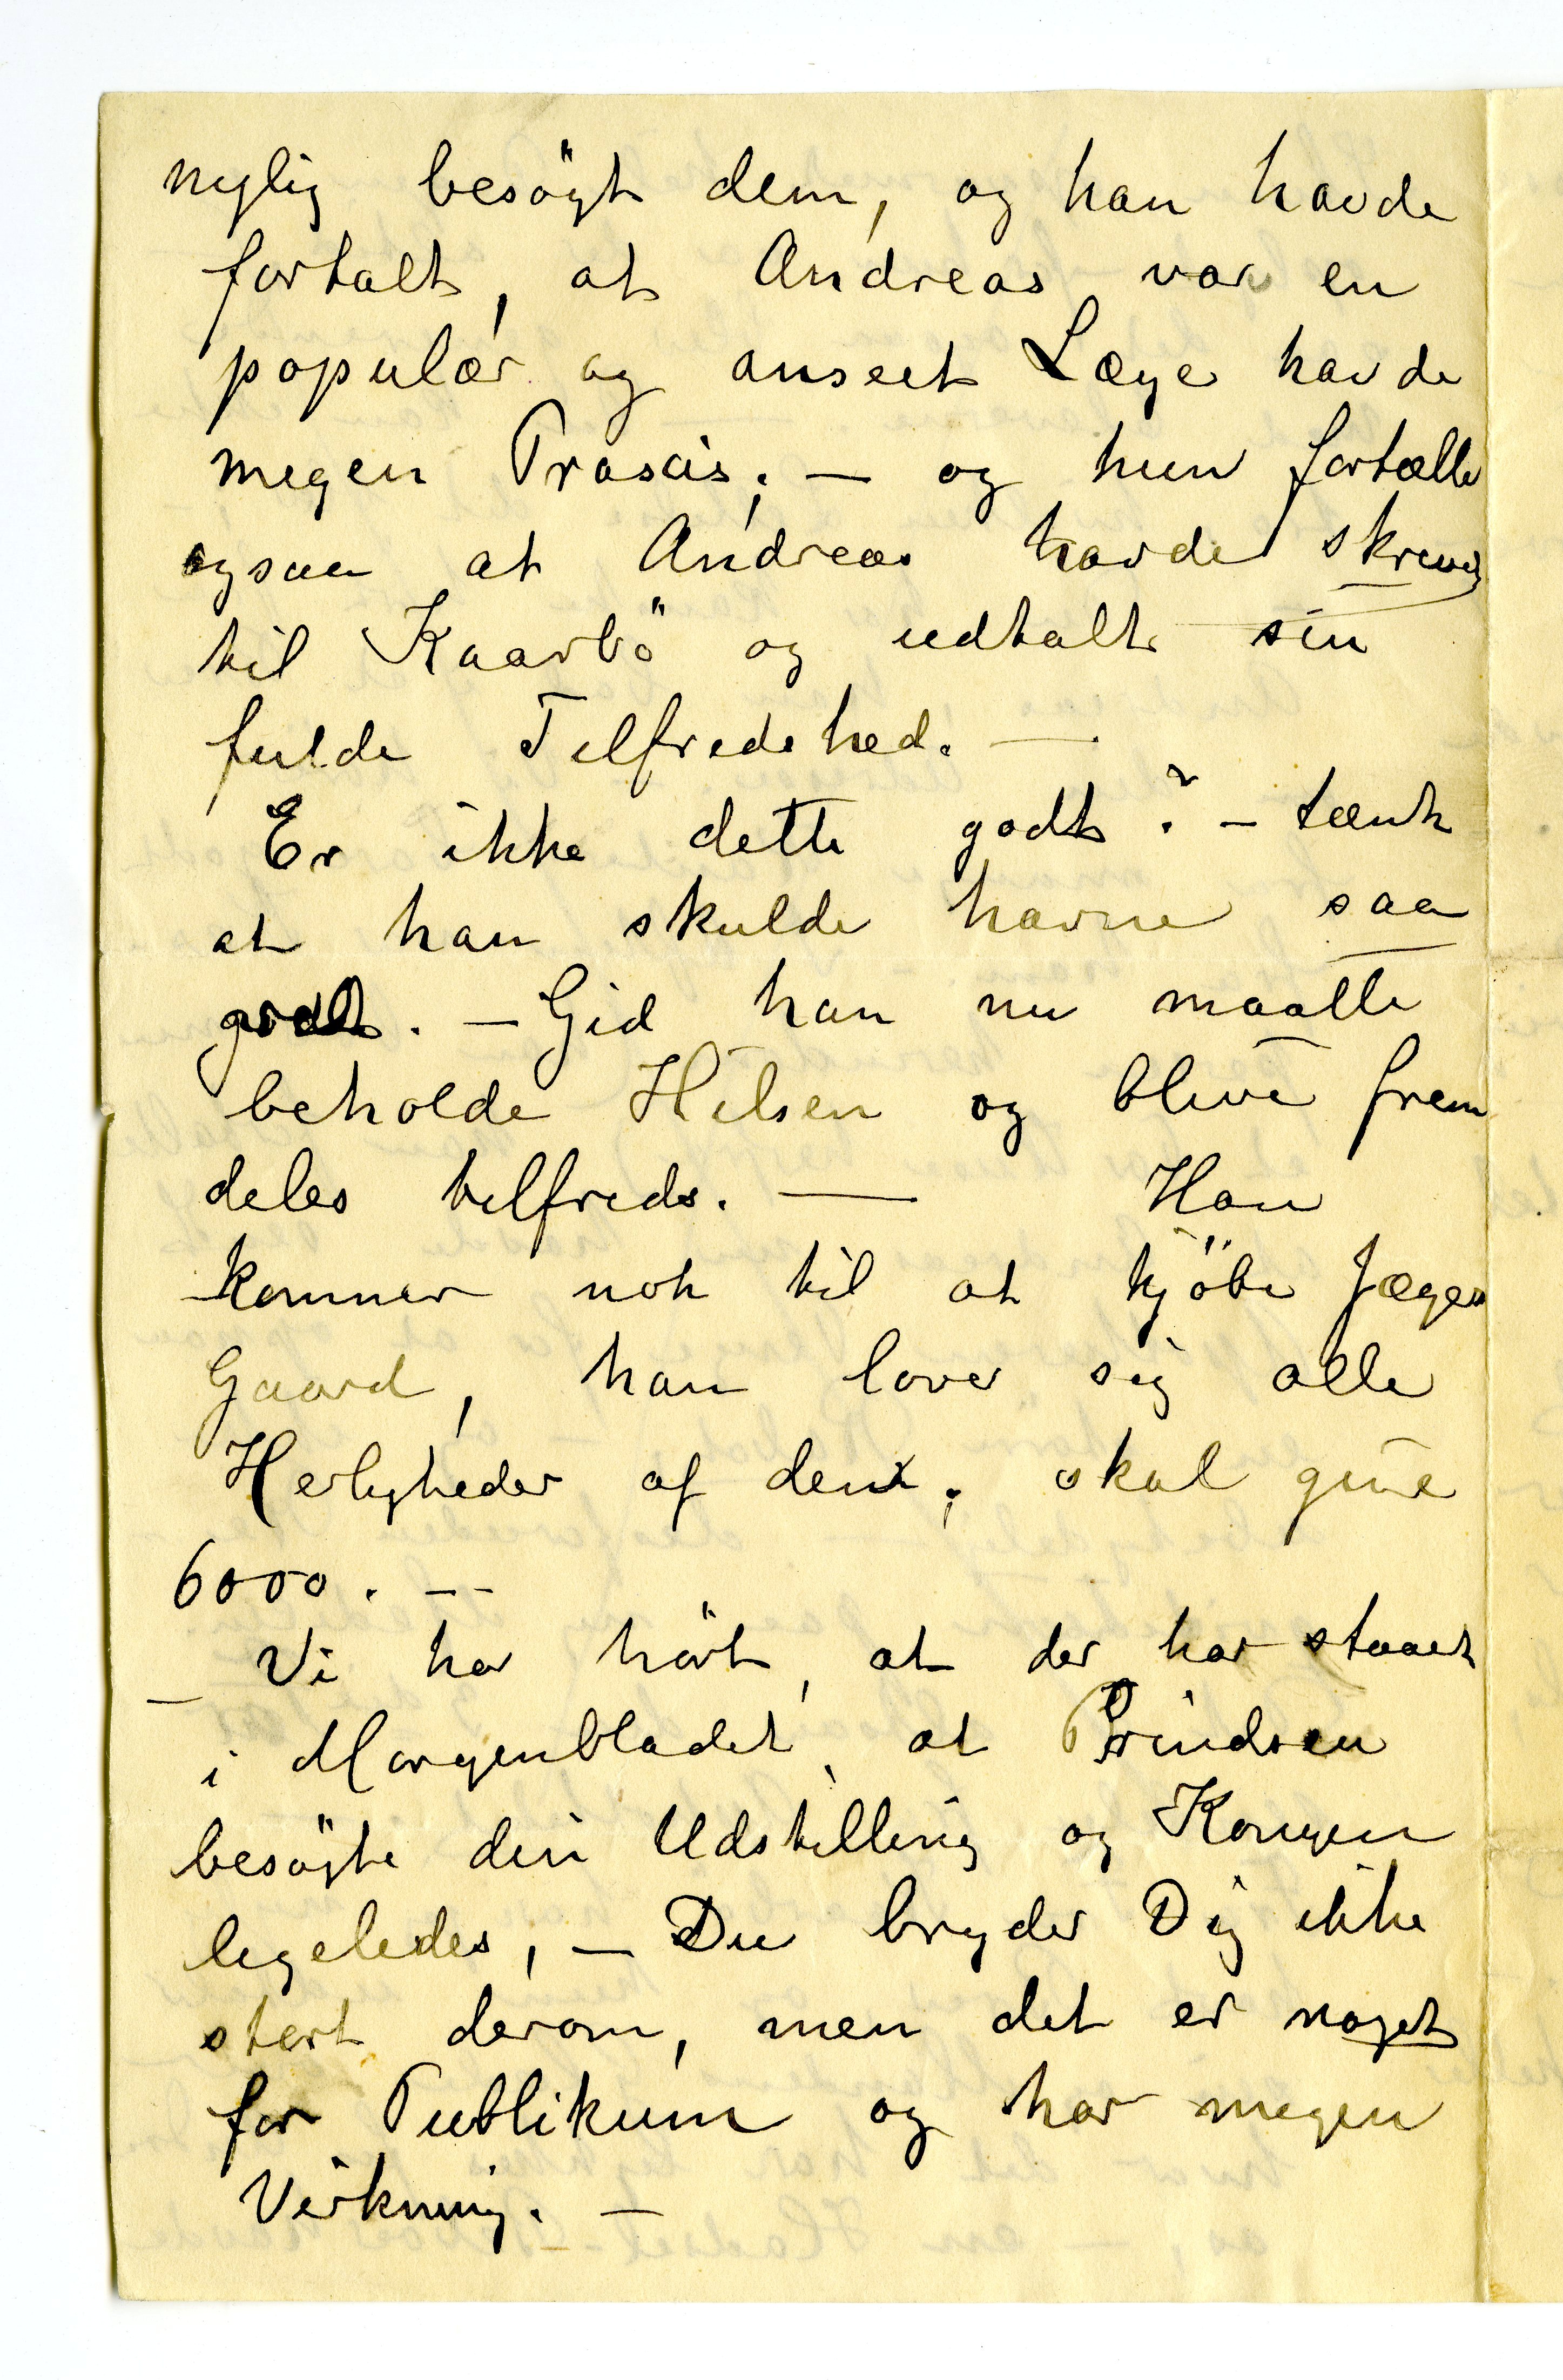 nylig besögt dem, og han havde
fortalt, at Andreas var en
populær og anseet Læge havde
megen Praxis; – og hun fortælle
ogsaa at Andreas havde skrevet
til Kaarbö og udtalt sin
fulde Tilfredshed. —
Er ikke dette godt? – tænk
at han skulde havne saa
godt. – Gid han nu maatte
beholde Hilsen og blive frem
deles tilfreds. — Han
kommer nok til at kjöbe Jæger
Gaard, han lover sig alle
Herligheder af den; skal give
6000. --
– Vi har hört, at der har staaet
i Morgenbladet, at Prindsen
besögte din Udstilling og Kongen
ligeledes, – Du bryder Dig ikke
stort derom, men det er noget
for Publikum og har megen
Virkning. –